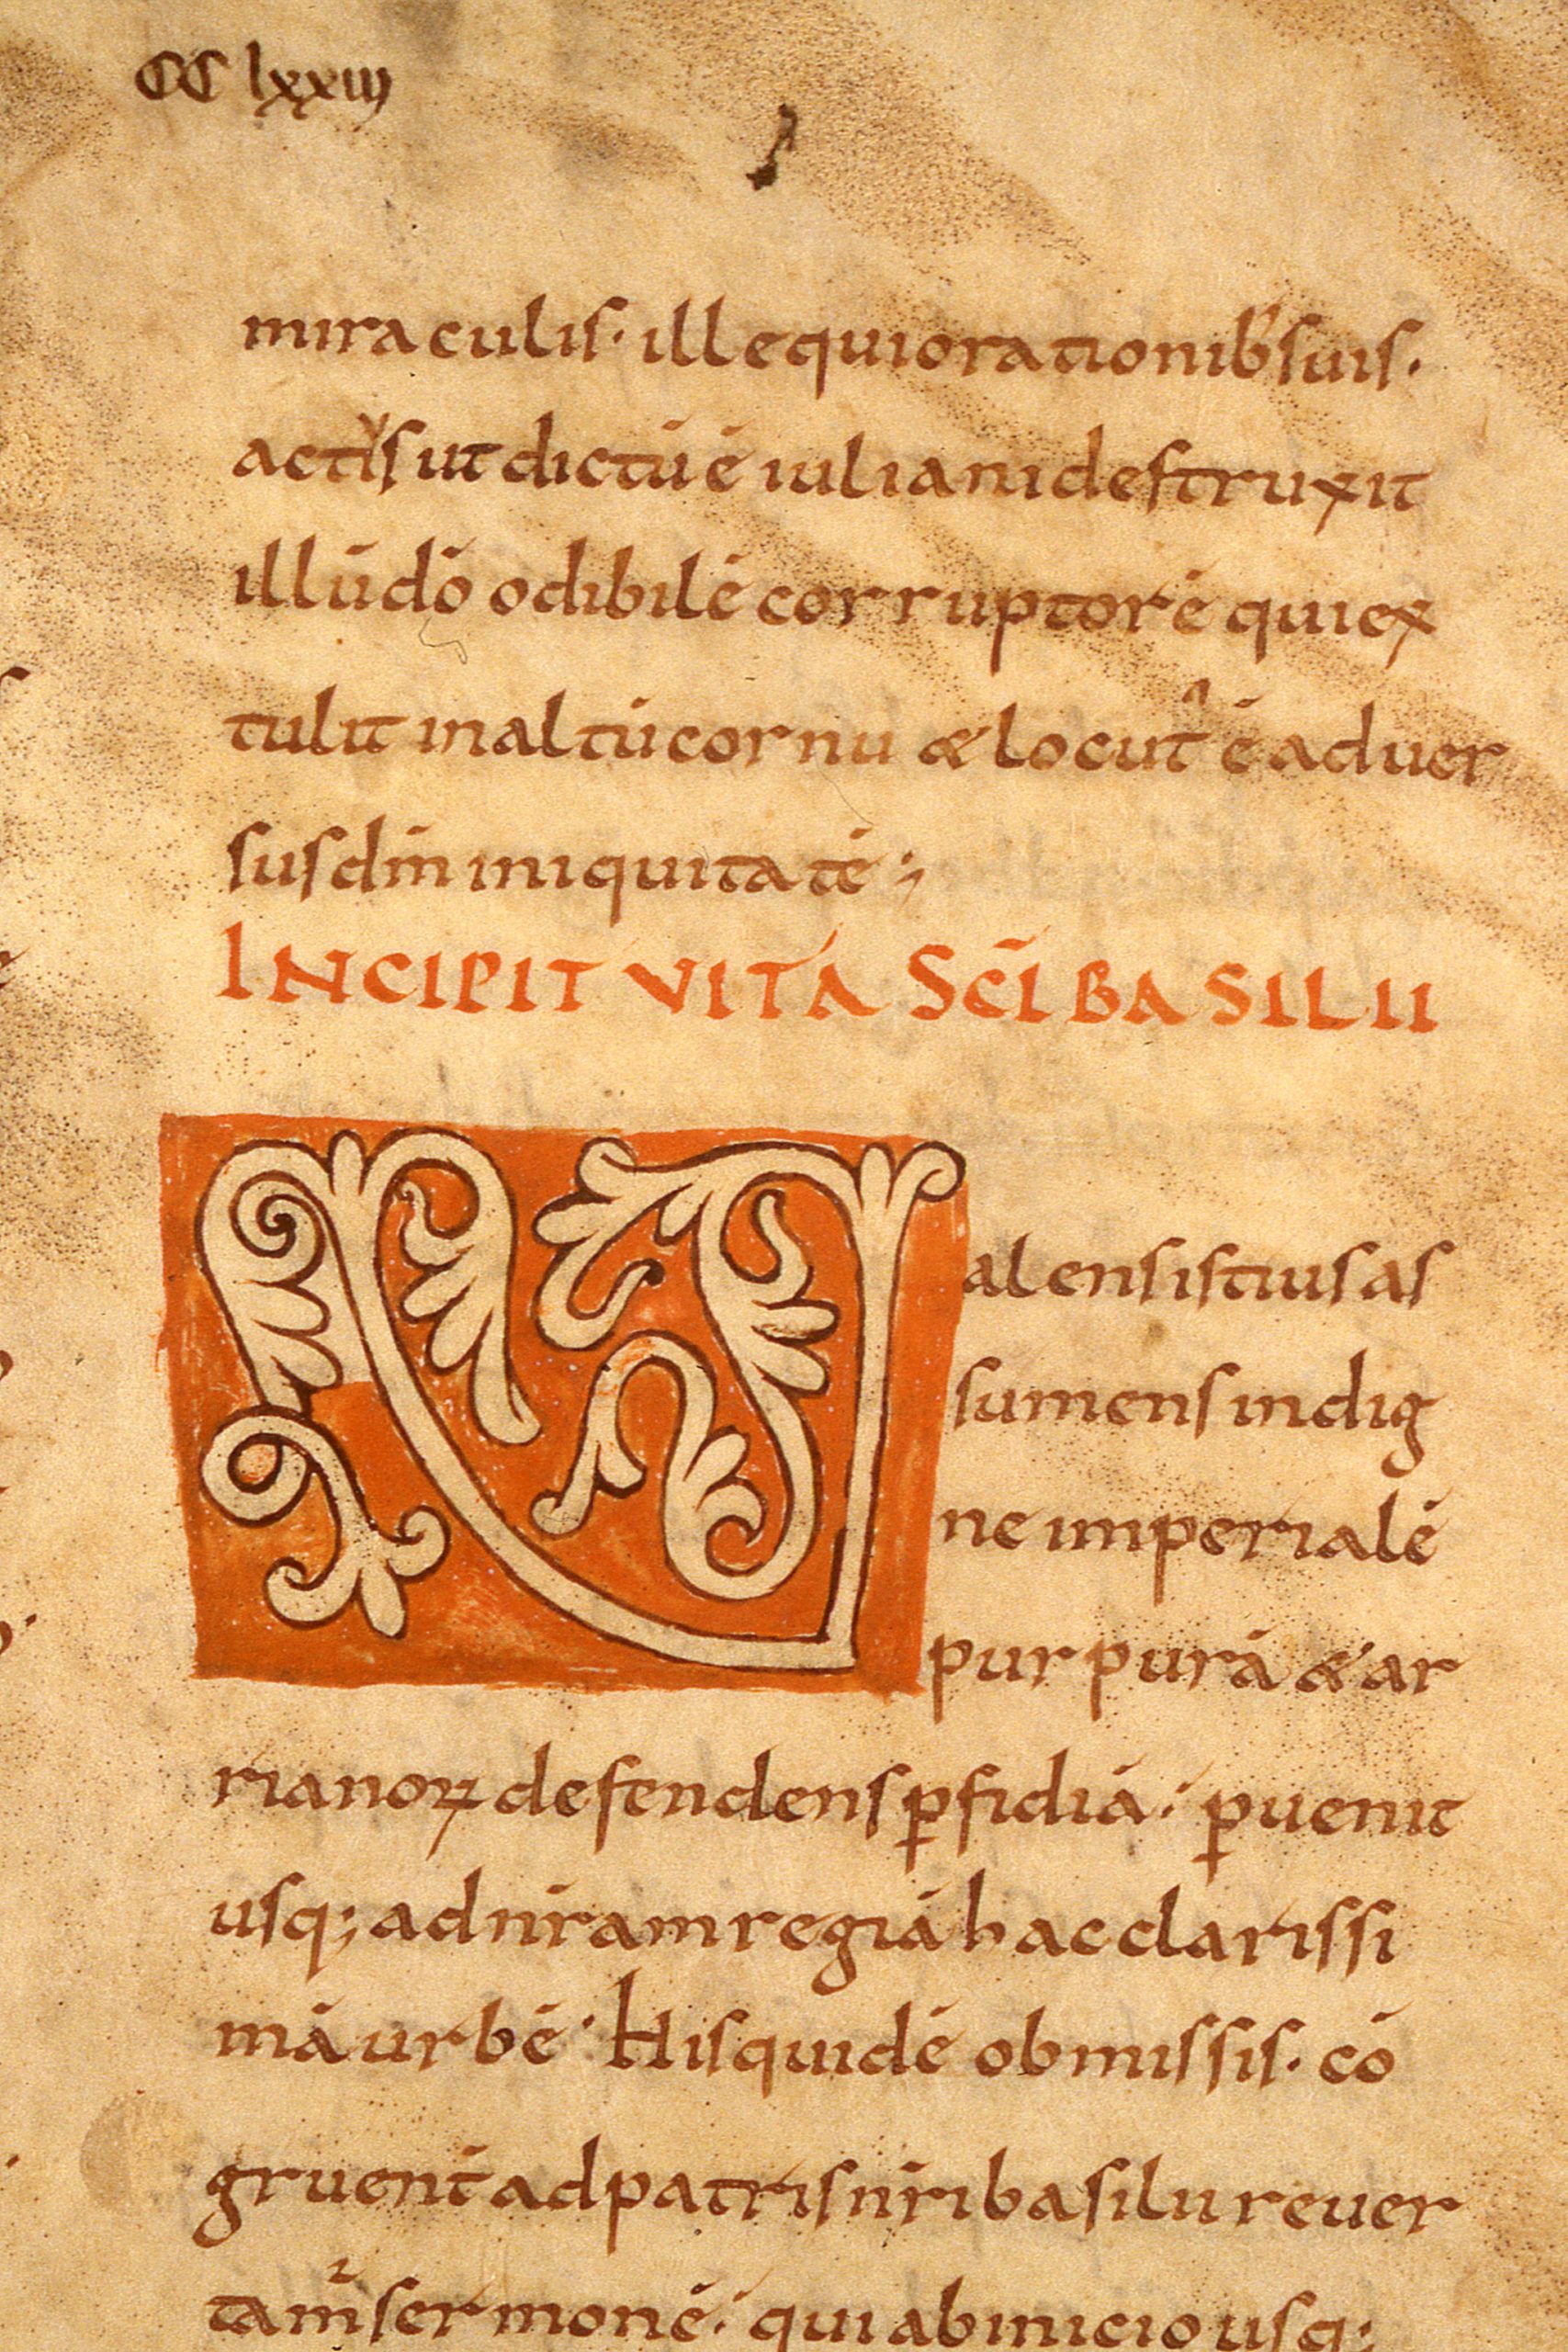 CC lxxiii
miraculis· ille qui orationib' suis·
actis ut dictū ē iuliani destruxit
illū dō odibilē corruptorē qui ex
tulit in altū cornu & locut' ē aduer
sus dm̄ iniquitatē;
INCIPIT VITA SC̄I BASILII
Valens istius as
sumens indig
ne imperialē
purpurā & ar
rianoꝝ defendens ꝑfidiā· ꝑuenit
usq; ad nr̄am regiā hac clarissi
mā urbē· His quidē obmissis· cō
gruent ad patris nr̄i basilii reuer
tam̄ sermonē· qui ab inicio usq;